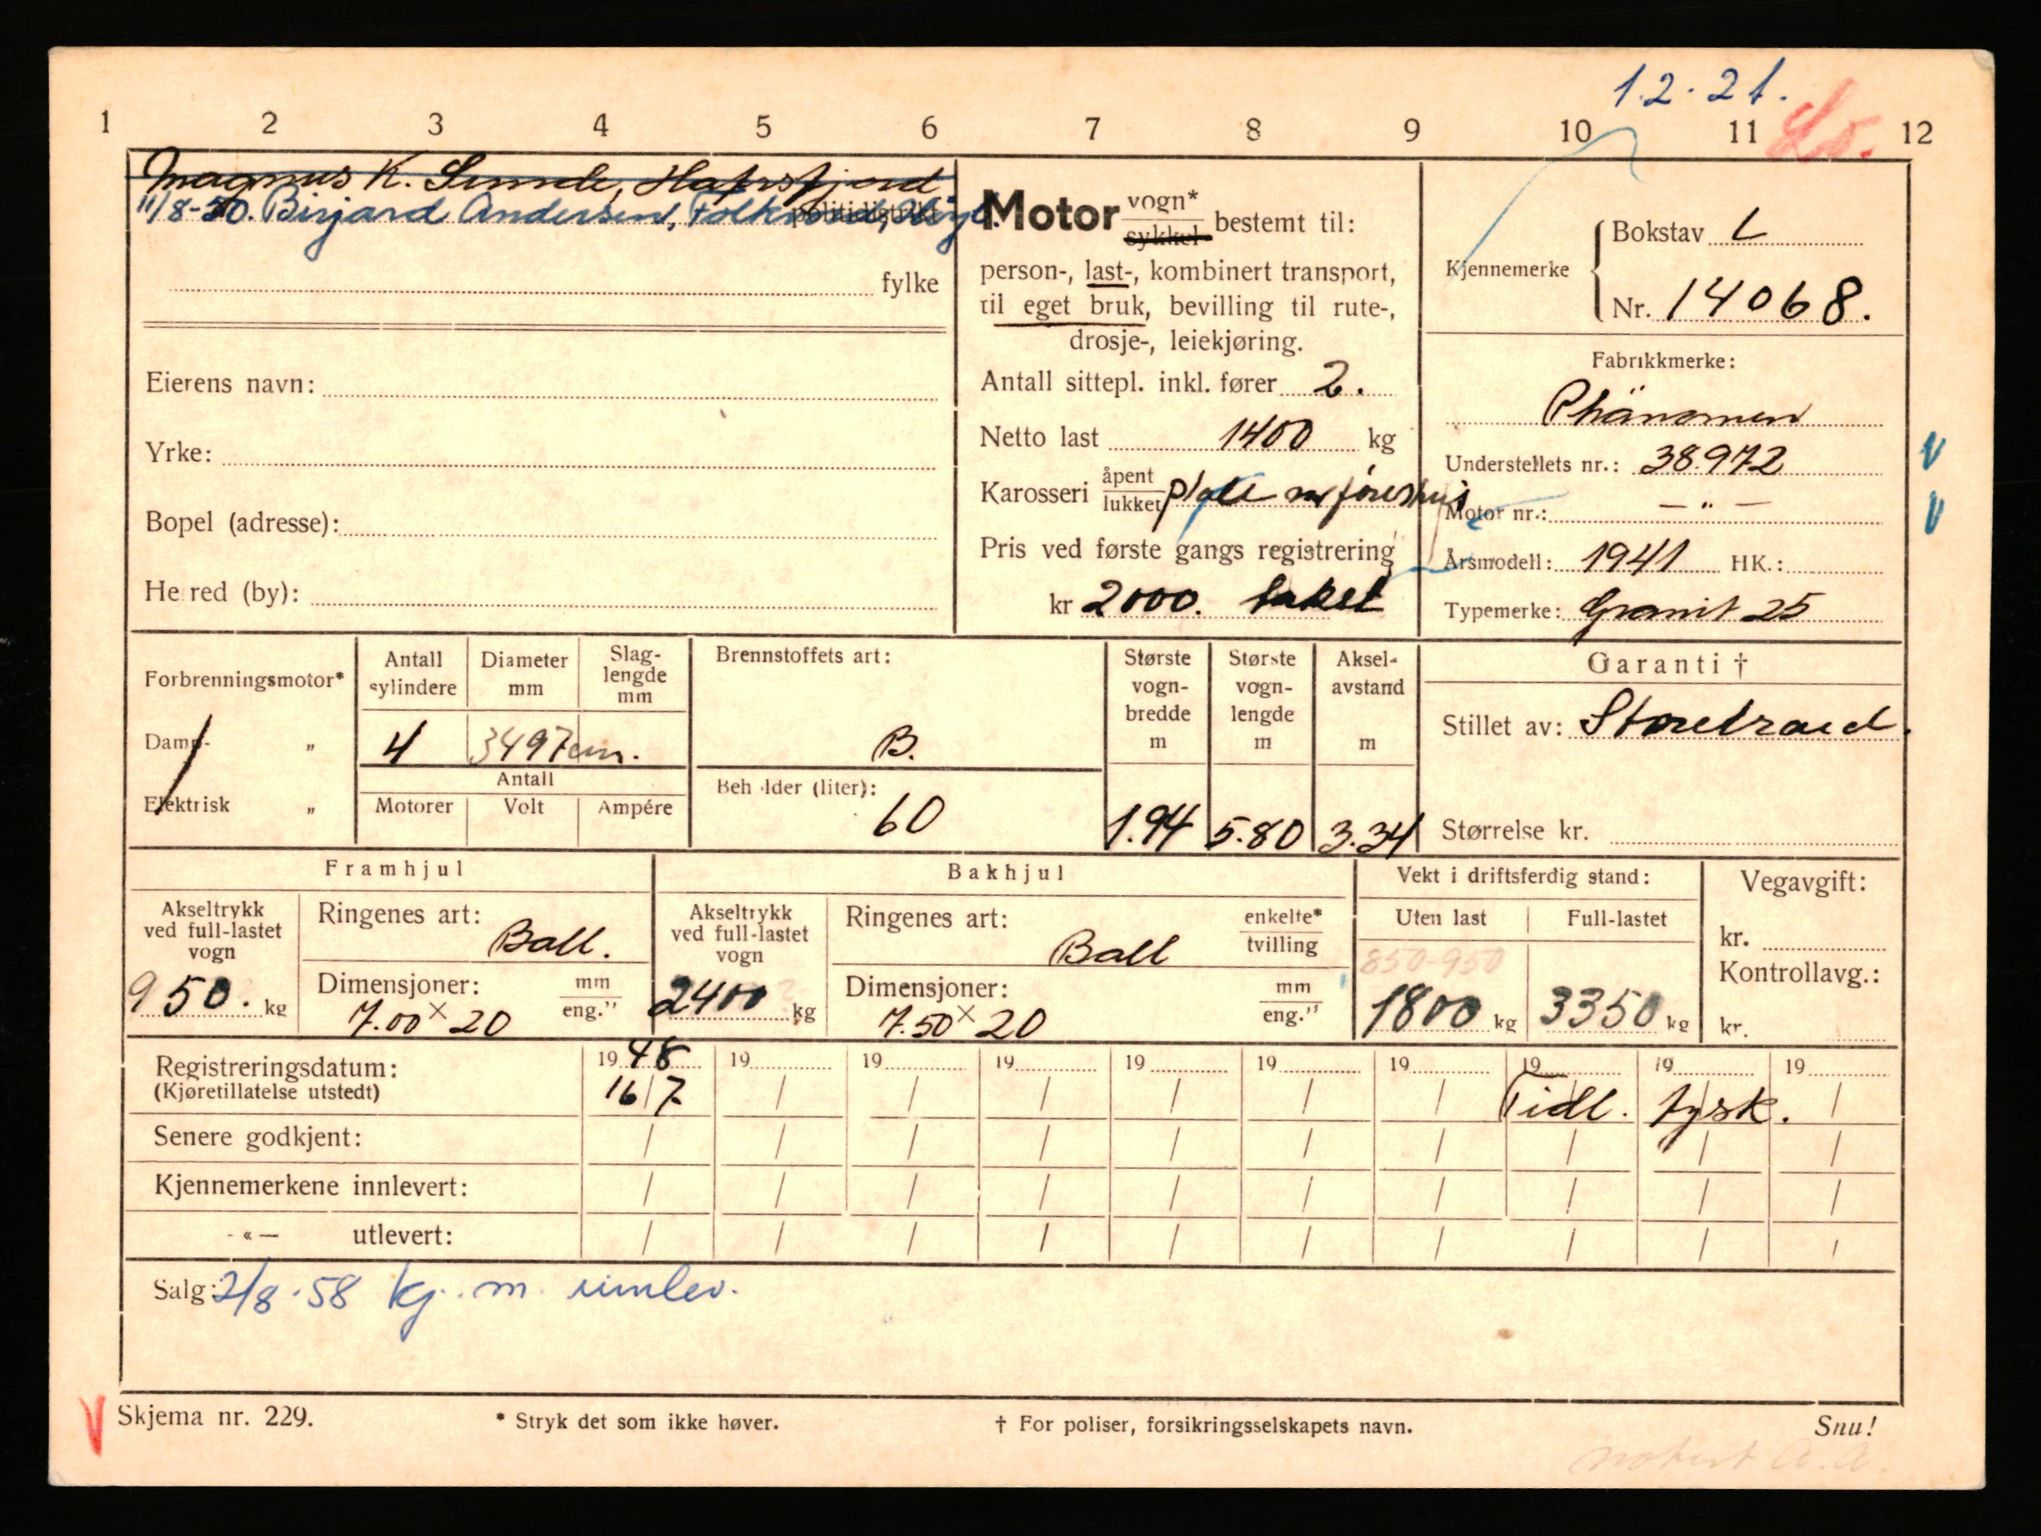 1.2.21.
1 2 3 4 5 6 7 8 9 10 11 12
Magnus K. Sunde, Hafrsfjord
11/8-50. Birjard Andersen,
politidistrikt
fylke
Eierens navn:
Yrke:
Bopel (adresse):
Herred (by):
Motor vogn* sykkel bestemt til:
person-, last-, kombinert transport,
til eget bruk, bevilling til rute-,
drosje-, leiekjøring.
Antall sittepl. inkl. fører 2.
Netto last 1400 kg
Karosseri åpent lukket plan m/førerhus
Pris ved første gangs registrering
kr 2000. takst
Kjennemerke
Bokstav L
Nr. 14068.
Fabrikkmerke:
Phänomen
Understellets nr.: 38972
Motor nr.: — " —
Årsmodell: 1941 HK.:
Typemerke: Granit 25
Forbrenningsmotor*
Damp- „
Elektrisk „
Antall sylindere
4
Diameter mm
Slag-lengde mm
3497cm.
Antall
Motorer Volt Ampére
Brennstoffets art:
B.
Beholder (liter):
60
Største vogn-bredde m
1.94
Største vogn-lengde m
5.80
Aksel-avstand m
3.34
Garanti †
Stillet av: Storebrand.
Størrelse kr.
Framhjul
Akseltrykk ved full-lastet vogn
950. kg
Ringenes art:
Ball.
Dimensjoner: mm eng."
7.00 x 20
Bakhjul
Akseltrykk ved full-lastet vogn
2400 kg
Ringenes art: enkelte* tvilling
Ball
Dimensjoner: mm eng."
7.50 x 20
Vekt i driftsferdig stand:
Uten last Full-lastet
850-950
1800 kg 3350 kg
Vegavgift:
kr.
Kontrollavg.:
kr.
Registreringsdatum: 1948 19 19 19 19 19 19 19 19 19
(Kjøretillatelse utstedt) 16/7 / / / / / / Tidl. tysk. /
Senere godkjent: / / / / / / / / / /
Kjennemerkene innlevert: / / / / / / / / / /
- « — utlevert: / / / / / / / / / /
Salg: 2/8-58 kj. m. innlev.
Skjema nr. 229.
* Stryk det som ikke høver.
† For poliser, forsikringsselskapets navn.
Snu!
notert A.A.